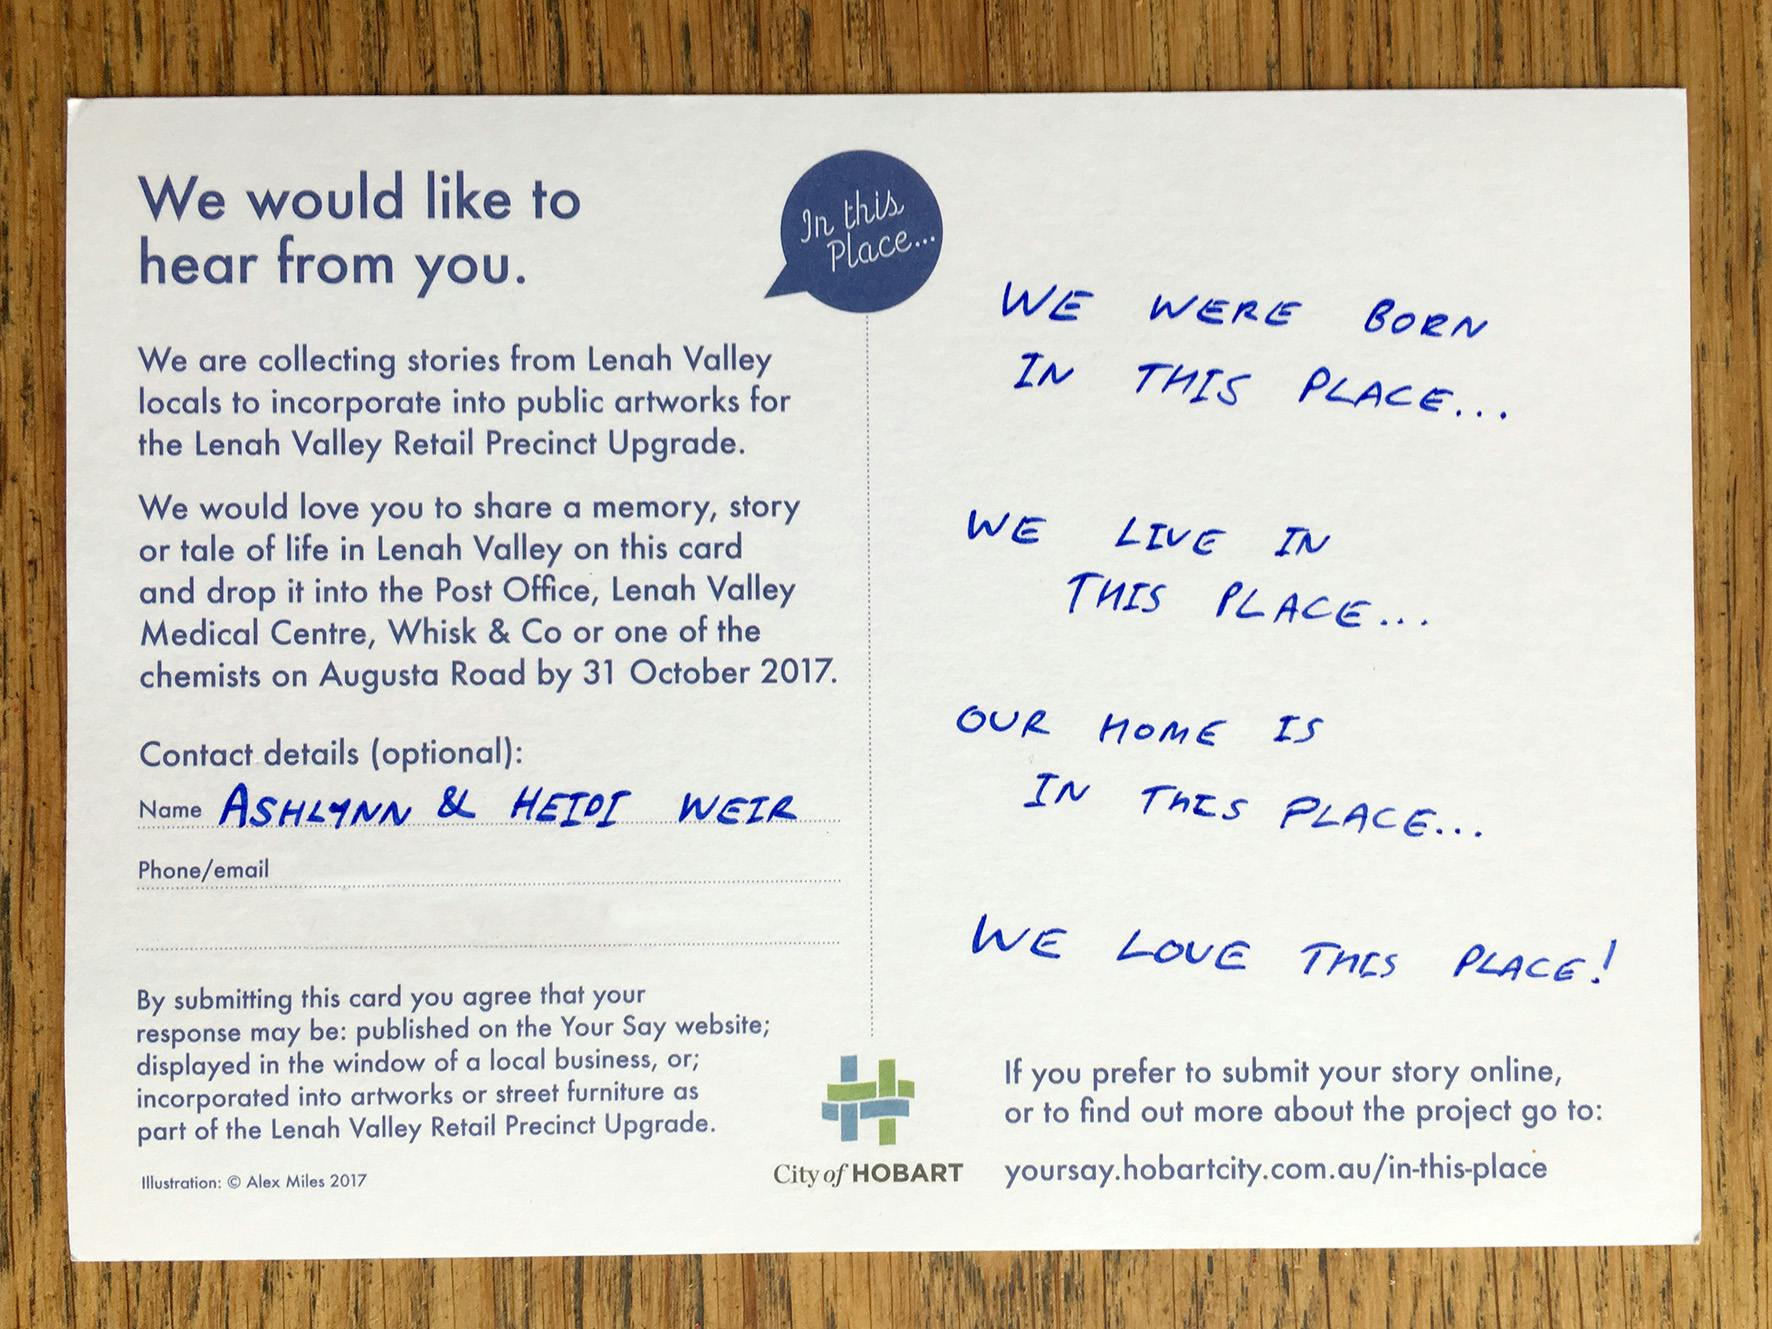 We would like to
hear from you.
In this
Place...
We are collecting stories from Lenah Valley
locals to incorporate into public artworks for
the Lenah Valley Retail Precinct Upgrade.
We would love you to share a memory, story
or tale of life in Lenah Valley on this card
and drop it into the Post Office, Lenah Valley
Medical Centre, Whisk & Co or one of the
chemists on Augusta Road by 31 October 2017.
Contact details (optional):
Name ASHLYNN & HEIDI WEIR
Phone/email
By submitting this card you agree that your
response may be: published on the Your Say website;
displayed in the window of a local business, or;
incorporated into artworks or street furniture as
part of the Lenah Valley Retail Precinct Upgrade.
Illustration: © Alex Miles 2017
City of HOBART
WE WERE BORN
IN THIS PLACE...
WE LIVE IN
THIS PLACE...
OUR HOME IS
IN THIS PLACE...
WE LOVE THIS PLACE!
If you prefer to submit your story online,
or to find out more about the project go to:
yoursay.hobartcity.com.au/in-this-place